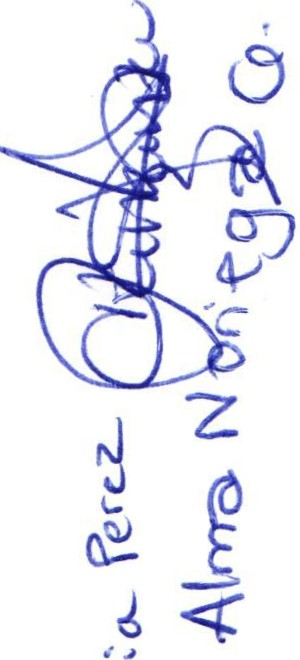 ia Perez
Alma Noriega Q.